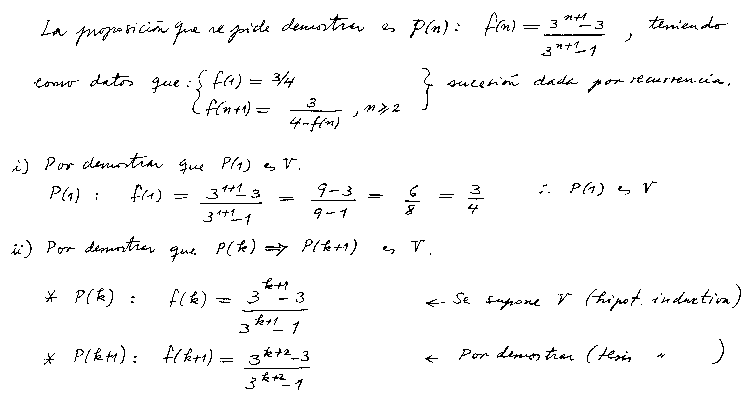 La proposición que se pide demostrar es P(n): f(n) = \frac{3^{n+1}-3}{3^{n+1}-1} , teniendo
como datos que: { f(1) = 3/4
f(n+1) = \frac{3}{4-f(n)} , n ≥ 2 } sucesión dada por recurrencia.
i) Por demostrar que P(1) es V.
P(1) : f(1) = \frac{3^{1+1}-3}{3^{1+1}-1} = \frac{9-3}{9-1} = \frac{6}{8} = \frac{3}{4} ∴ P(1) es V
ii) Por demostrar que P(k) ⇒ P(k+1) es V.
* P(k) : f(k) = \frac{3^{k+1}-3}{3^{k+1}-1} ← Se supone V (hipot. inductiva)
* P(k+1) : f(k+1) = \frac{3^{k+2}-3}{3^{k+2}-1} ← Por demostrar (tesis " )